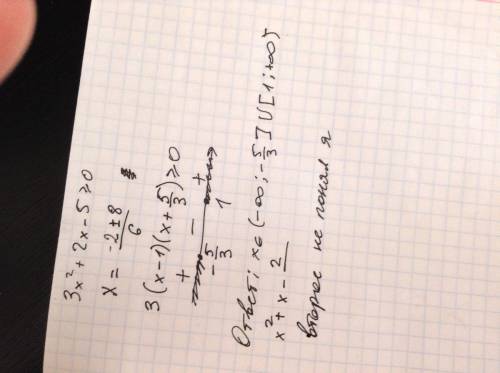 3x² + 2x - 5 ≥ 0
x = (-2 ± 8)/6
3(x-1)(x+5/3) ≥ 0
+ - +
-5/3 1
Ответ: x ∈ (-∞; -5/3] U [1; +∞)
x² + x - 2
второе не понял я